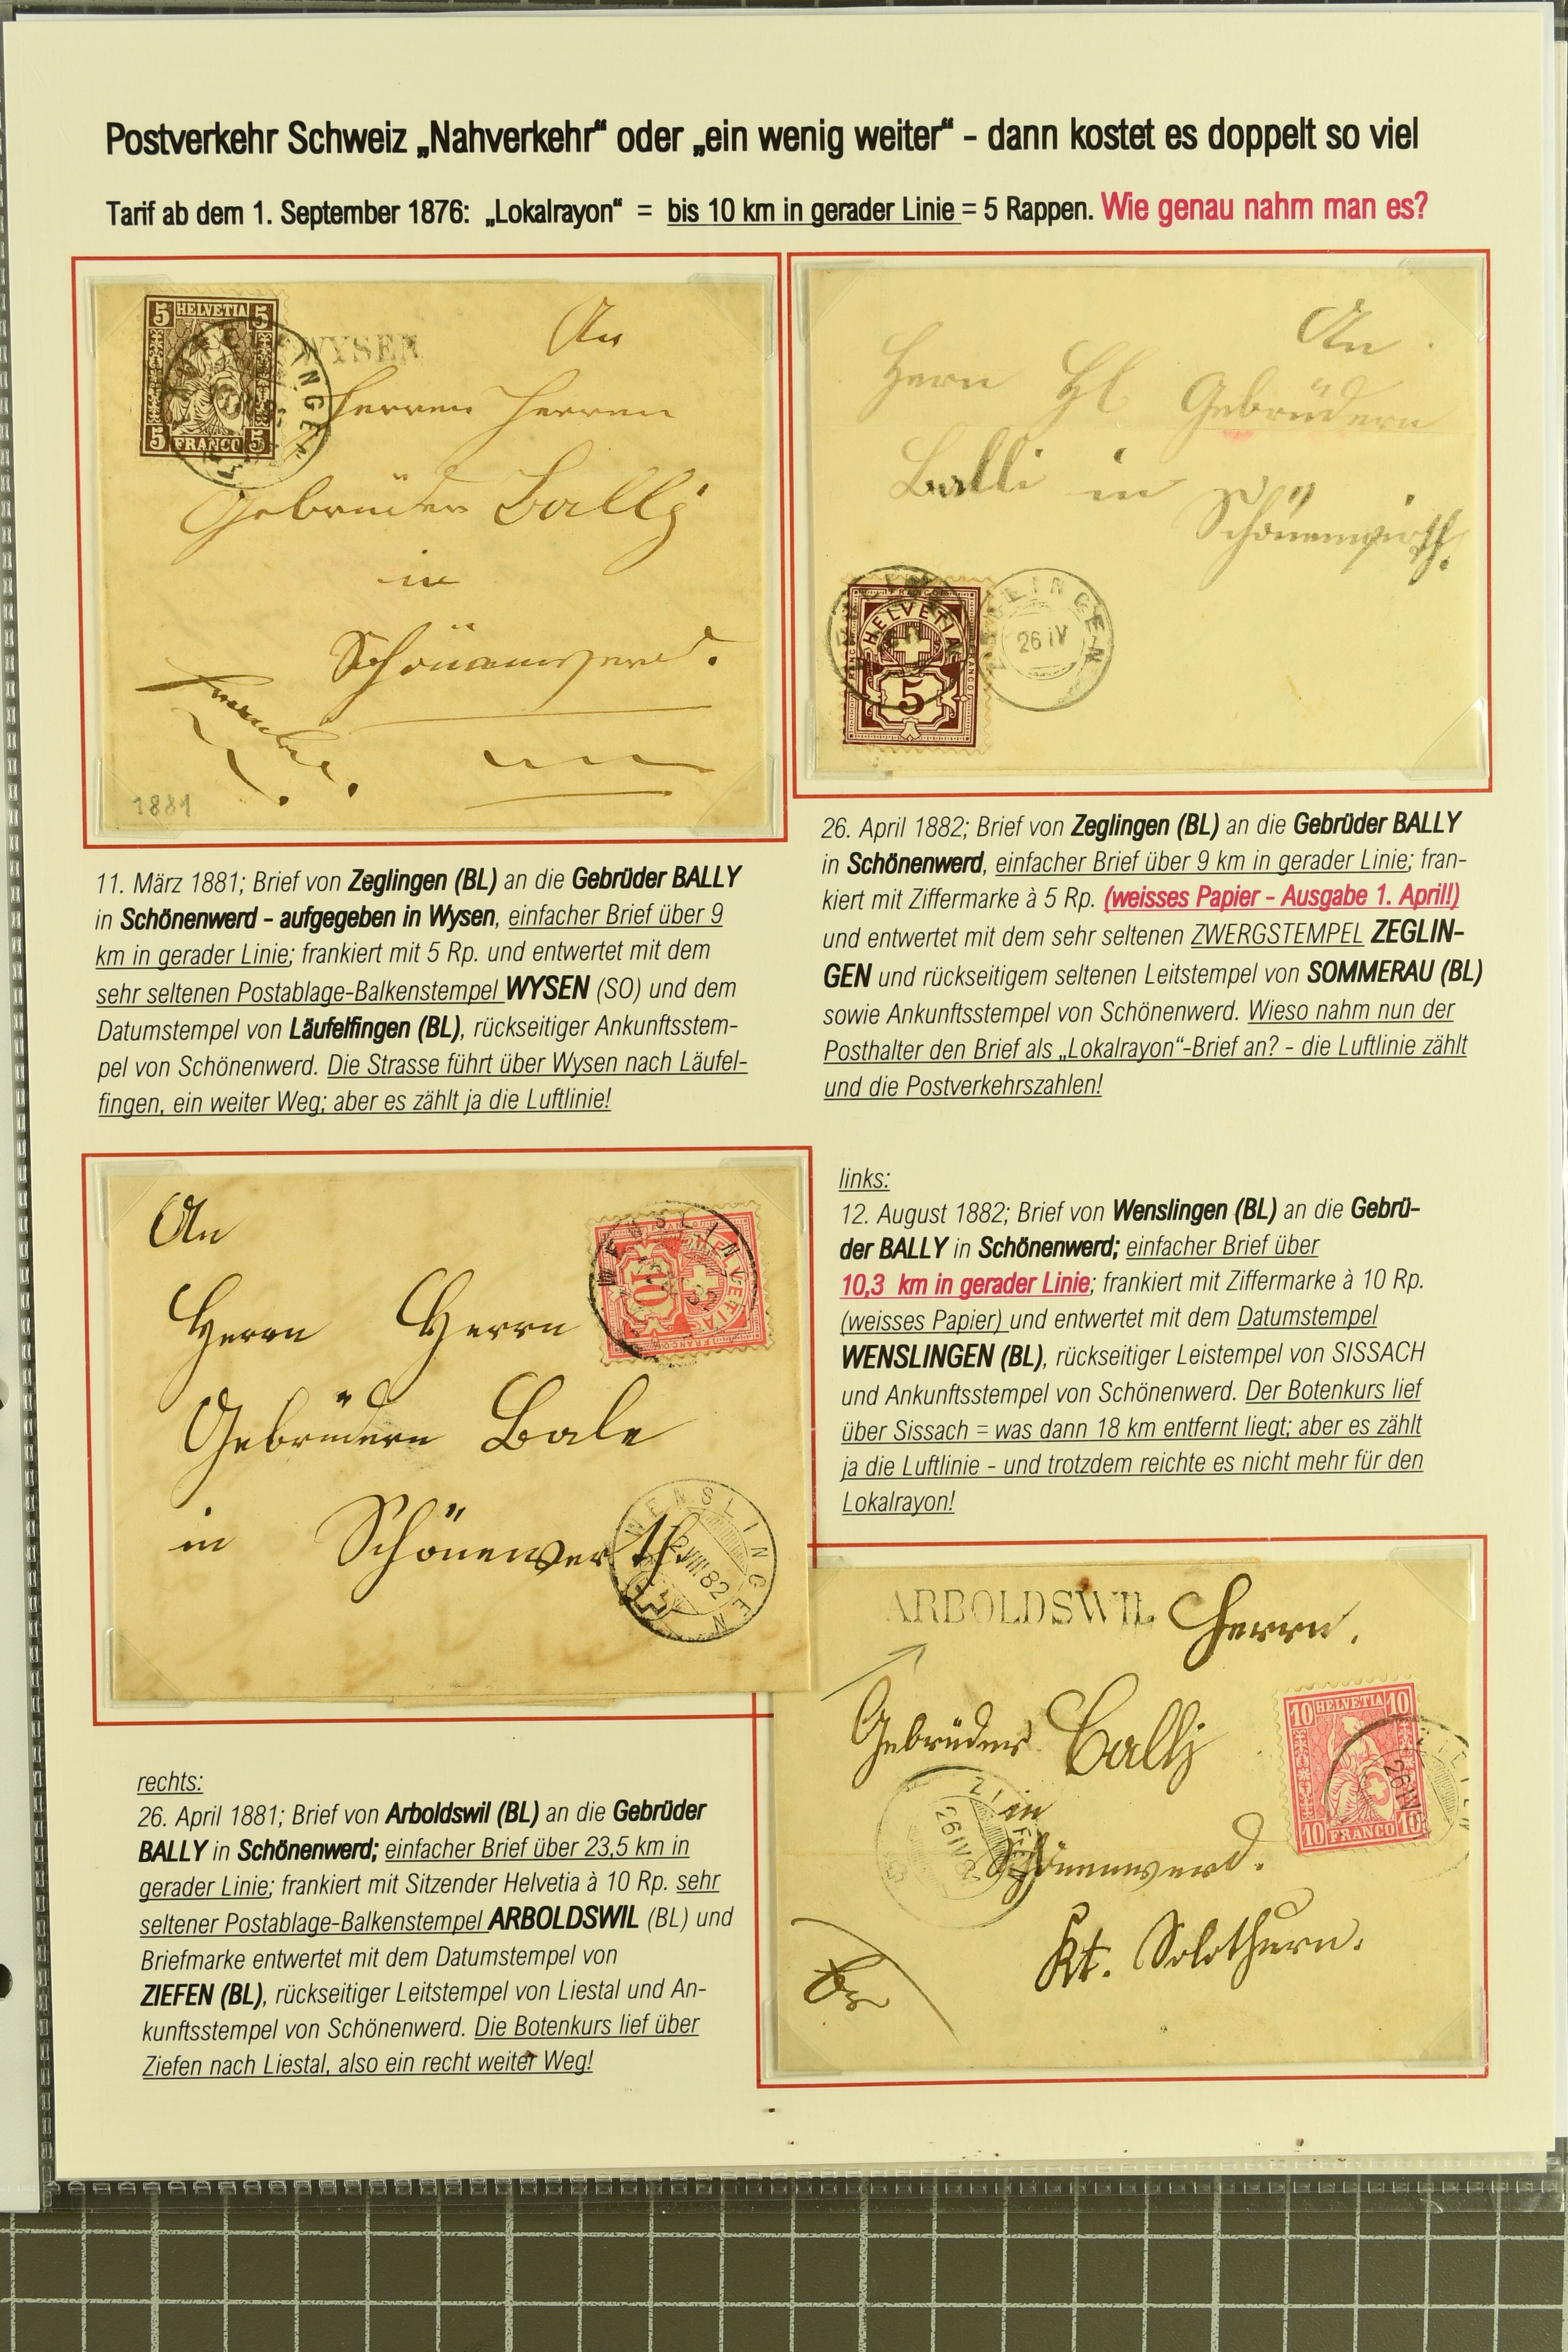 Postverkehr Schweiz „Nahverkehr“ oder „ein wenig weiter“ – dann kostet es doppelt so viel
Tarif ab dem 1. September 1876: „Lokalrayon“ = bis 10 km in gerader Linie = 5 Rappen. Wie genau nahm man es?
5 HELVETIA 5
5 FRANCO 5
WYSEN
An
Herren Herren
Gebrüder Bally
in
Schönenwerd.
1881
An
Herrn HH Gebrüdern
Balli in
Schönenwirth.
FRANCO
HELVETIA
5
ZEGLINGEN
26 IV
11. März 1881; Brief von Zeglingen (BL) an die Gebrüder BALLY
in Schönenwerd – aufgegeben in Wysen, einfacher Brief über 9
km in gerader Linie; frankiert mit 5 Rp. und entwertet mit dem
sehr seltenen Postablage-Balkenstempel WYSEN (SO) und dem
Datumstempel von Läufelfingen (BL), rückseitiger Ankunftsstem-
pel von Schönenwerd. Die Strasse führt über Wysen nach Läufel-
fingen, ein weiter Weg; aber es zählt ja die Luftlinie!
26. April 1882; Brief von Zeglingen (BL) an die Gebrüder BALLY
in Schönenwerd, einfacher Brief über 9 km in gerader Linie; fran-
kiert mit Ziffermarke à 5 Rp. (weisses Papier – Ausgabe 1. April!)
und entwertet mit dem sehr seltenen ZWERGSTEMPEL ZEGLIN-
GEN und rückseitigem seltenen Leitstempel von SOMMERAU (BL)
sowie Ankunftsstempel von Schönenwerd. Wieso nahm nun der
Posthalter den Brief als „Lokalrayon“-Brief an? - die Luftlinie zählt
und die Postverkehrszahlen!
An
Herrn Herrn
Gebrüdern Bale
in Schönenwerth.
HELVETIA
10
FRANCO
WENSLINGEN
12 VIII 82
links:
12. August 1882; Brief von Wenslingen (BL) an die Gebrü-
der BALLY in Schönenwerd; einfacher Brief über
10,3 km in gerader Linie; frankiert mit Ziffermarke à 10 Rp.
(weisses Papier) und entwertet mit dem Datumstempel
WENSLINGEN (BL), rückseitiger Leistempel von SISSACH
und Ankunftsstempel von Schönenwerd. Der Botenkurs lief
über Sissach = was dann 18 km entfernt liegt; aber es zählt
ja die Luftlinie - und trotzdem reichte es nicht mehr für den
Lokalrayon!
ARBOLDSWIL
Herrn.
Gebrüder Bally
in
Schönenwerd.
Kt. Solothurn.
10 HELVETIA 10
10 FRANCO 10
ZIEFEN
26 IV 81
rechts:
26. April 1881; Brief von Arboldswil (BL) an die Gebrüder
BALLY in Schönenwerd; einfacher Brief über 23,5 km in
gerader Linie; frankiert mit Sitzender Helvetia à 10 Rp. sehr
seltener Postablage-Balkenstempel ARBOLDSWIL (BL) und
Briefmarke entwertet mit dem Datumstempel von
ZIEFEN (BL), rückseitiger Leitstempel von Liestal und An-
kunftsstempel von Schönenwerd. Die Botenkurs lief über
Ziefen nach Liestal, also ein recht weiter Weg!